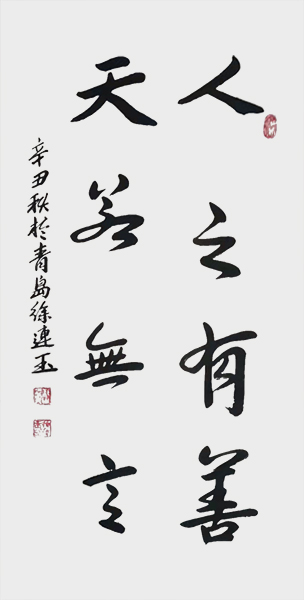 人之有善
天若無言
辛丑秋於青島徐連玉